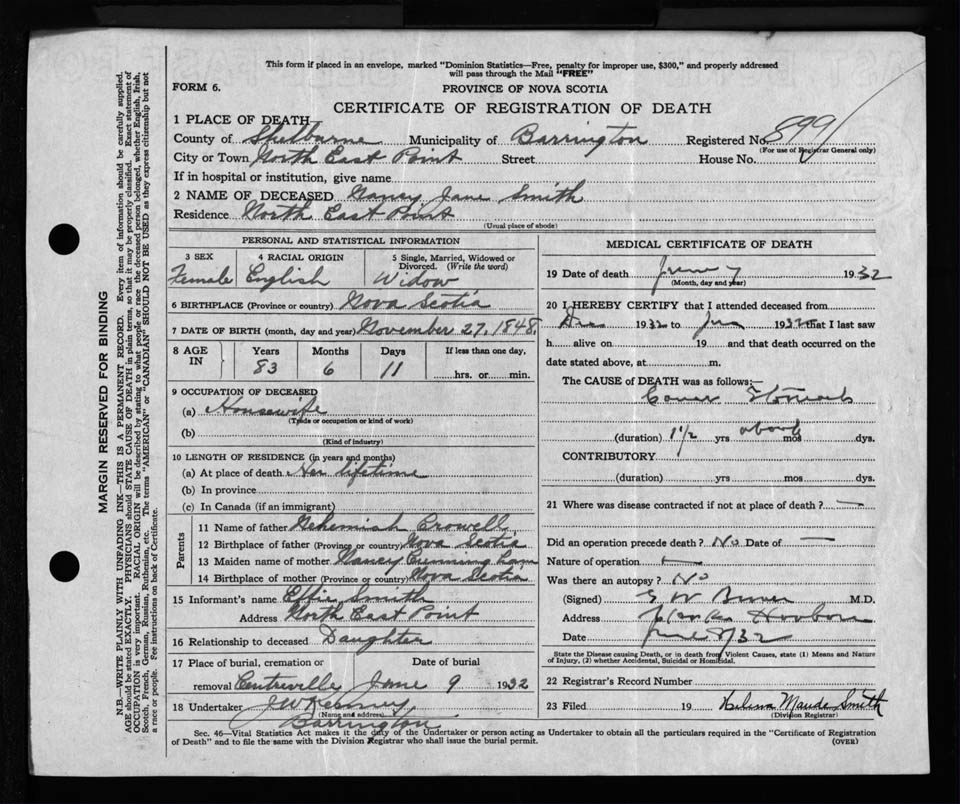 This form if placed in an envelope, marked "Dominion Statistics—Free, penalty for improper use, $300," and properly addressed
will pass through the Mail "FREE"
FORM 6.
PROVINCE OF NOVA SCOTIA
CERTIFICATE OF REGISTRATION OF DEATH
1 PLACE OF DEATH
County of Shelburne Municipality of Barrington Registered No. 899
(For use of Registrar General only)
City or Town North East Point Street House No.
If in hospital or institution, give name
2 NAME OF DECEASED Nancy Jane Smith
Residence North East Point
(Usual place of abode)
PERSONAL AND STATISTICAL INFORMATION
3 SEX 4 RACIAL ORIGIN 5 Single, Married, Widowed or
Divorced. (Write the word)
Female English Widow
6 BIRTHPLACE (Province or country) Nova Scotia
7 DATE OF BIRTH (month, day and year) November 27, 1848
8 AGE IN Years Months Days If less than one day,
83 6 11 hrs. or min.
9 OCCUPATION OF DECEASED
(a) Housewife
(Trade or occupation or kind of work)
(b)
(Kind of industry)
10 LENGTH OF RESIDENCE (in years and months)
(a) At place of death Her lifetime
(b) In province
(c) In Canada (if an immigrant)
Parents
11 Name of father Nehemiah Crowell
12 Birthplace of father (Province or country) Nova Scotia
13 Maiden name of mother Nancy Cunningham
14 Birthplace of mother (Province or country) Nova Scotia
15 Informant's name Effie Smith
Address North East Point
16 Relationship to deceased Daughter
17 Place of burial, cremation or Date of burial
removal Centreville June 9 1932
18 Undertaker J W Kenney
(Name and address)
Barrington
MEDICAL CERTIFICATE OF DEATH
19 Date of death June 7 1932
(Month, day and year)
20 I HEREBY CERTIFY that I attended deceased from
Dec 1932 to Jun 1932 that I last saw
h alive on 19 and that death occurred on the
date stated above, at m.
The CAUSE of DEATH was as follows:—
Cancer Stomach
(duration) 1 1/2 yrs about mos dys.
CONTRIBUTORY
(duration) yrs mos dys.
21 Where was disease contracted if not at place of death? —
Did an operation precede death? No Date of —
Nature of operation —
Was there an autopsy? No
(Signed) M.D.
Address Clarks Harbour
Date June 8/32
State the Disease causing Death, or in death from Violent Causes, state (1) Means and Nature
of Injury, (2) whether Accidental, Suicidal or Homicidal.
22 Registrar's Record Number
23 Filed 19 Maude Smith
(Division Registrar)
Sec. 46—Vital Statistics Act makes it the duty of the Undertaker or person acting as Undertaker to obtain all the particulars required in the "Certificate of Registration
of Death" and to file the same with the Division Registrar who shall issue the burial permit.
(OVER)
MARGIN RESERVED FOR BINDING
N.B.—WRITE PLAINLY WITH UNFADING INK—THIS IS A PERMANENT RECORD. Every item of information should be carefully supplied.
AGE should be stated EXACTLY. PHYSICIANS should STATE CAUSE OF DEATH in plain terms, so that it may be properly classified. Exact statement of
OCCUPATION is very important. RACIAL ORIGIN will be described by stating to what people or race the deceased person belonged, whether English, Irish,
Scotch, French, German, Russian, Ruthenian, etc. The terms "AMERICAN" or "CANADIAN" SHOULD NOT BE USED as they express citizenship but not
a race or people. Fee instructions on back of Certificate.